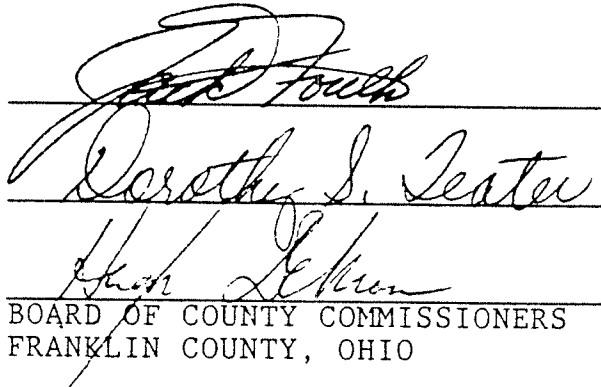 Jack Foulk
Dorothy S. Teater
Hugh DeMoss
BOARD OF COUNTY COMMISSIONERS
FRANKLIN COUNTY, OHIO